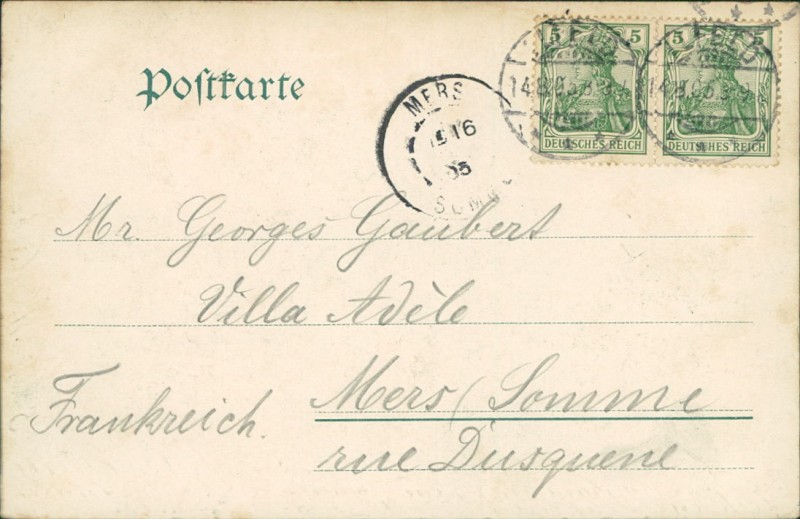 Postkarte
5 5
5 5
DEUTSCHES REICH
DEUTSCHES REICH
MERS
16
05
SOMME
Mr. Georges Gaubert
Villa Adèle
Mers (Somme
rue Dusquene
Frankreich.